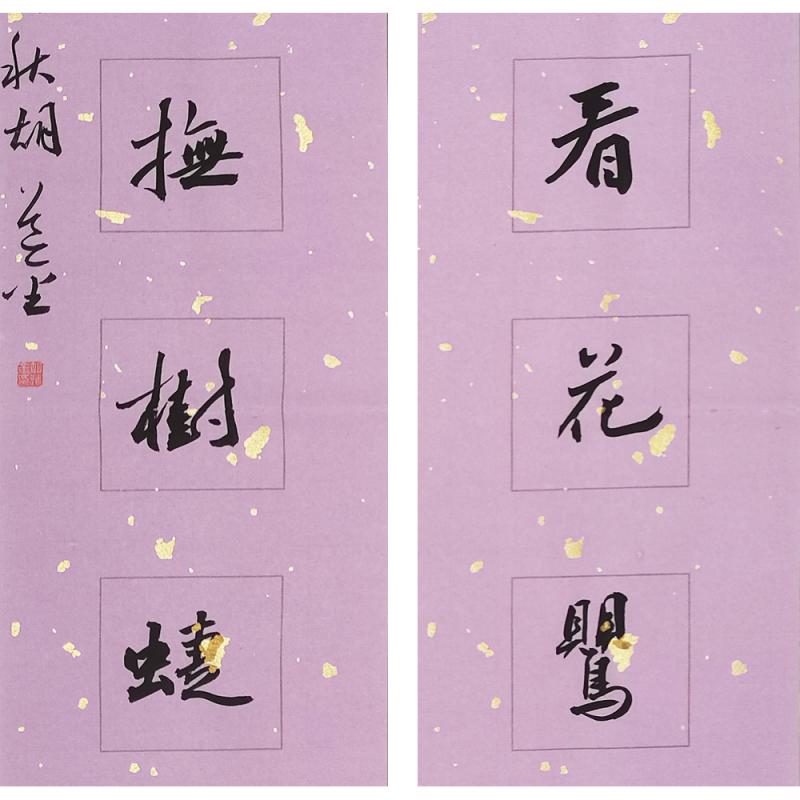 看花鸎
撫樹蜨
秋胡